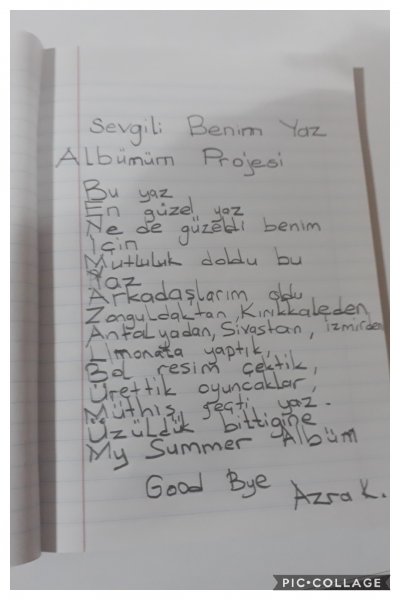 Sevgili Benim Yaz
Albümüm Projesi
Bu yaz
En güzel yaz
Ne de güzeldi benim
İçin
Mutluluk doldu bu
Yaz
Arkadaşlarım oldu
Zonguldaktan, Kırıkkaleden,
Antalyadan, Sivastan, İzmirden
Limonata yaptık,
Bol resim çektik,
Ürettik oyuncaklar,
Müthiş geçti yaz.
Üzüldük bittiğine
My Summer Albüm
Good Bye
Azra K.
PIC•COLLAGE